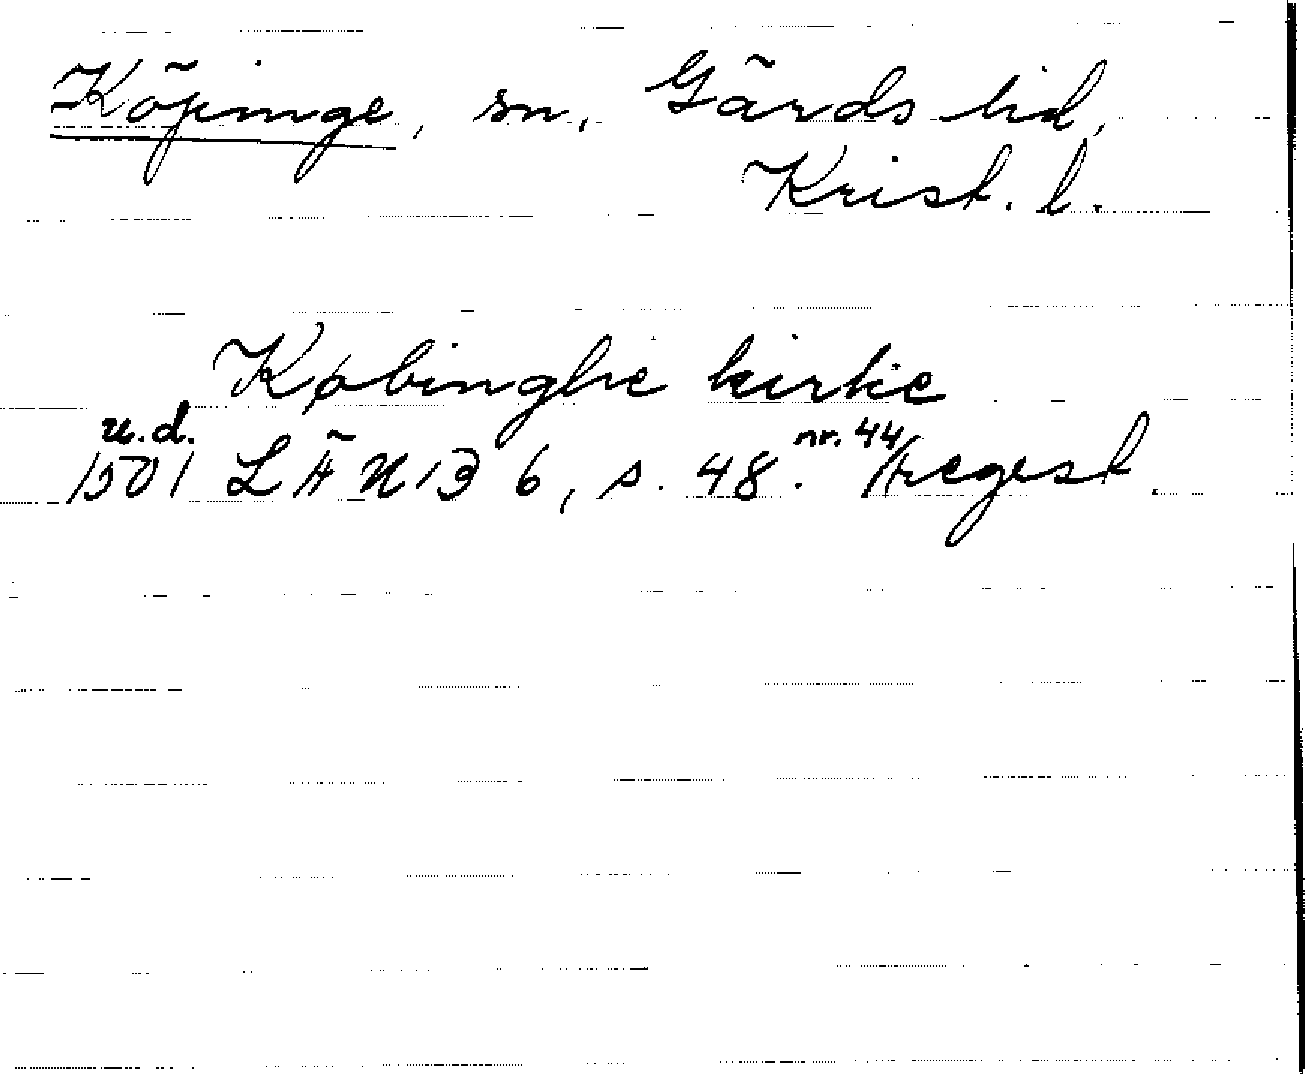 Köpinge, sn, Gärds hd,
Krist. l.
Købinghe kirke
u.d. nr. 44
1501 LÄNB 6, s. 48. Aregest.